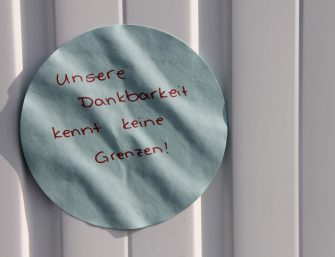 Unsere
Dankbarkeit
kennt keine
Grenzen!